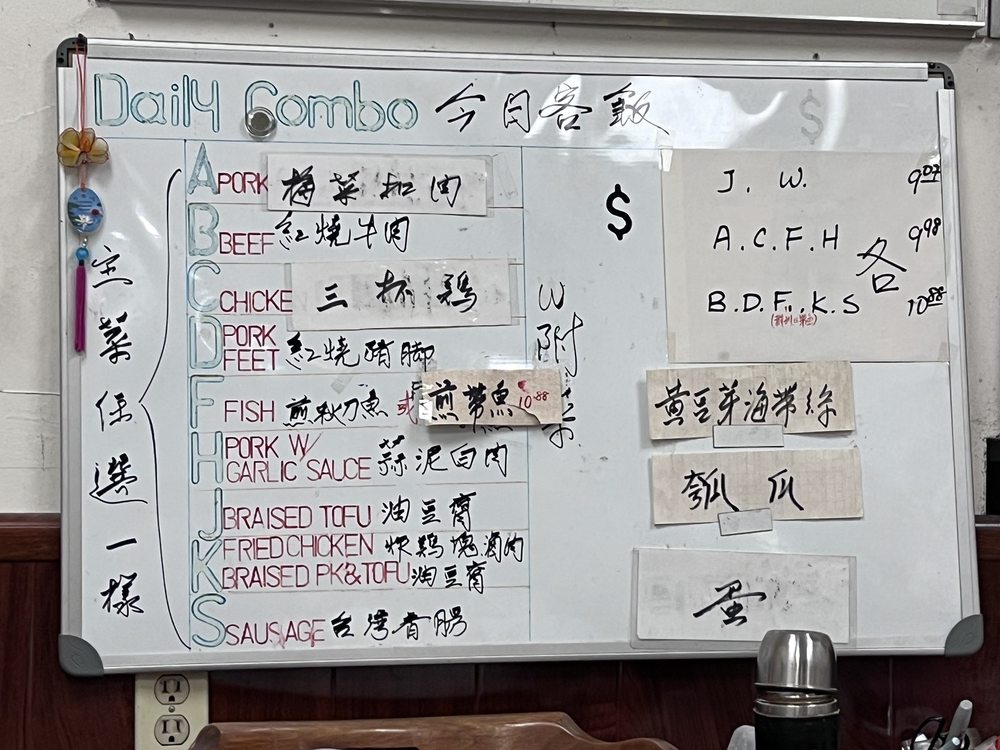 Daily Combo 今日客飯
主菜任選一樣
A PORK 梅菜扣肉
B BEEF 紅燒牛肉
C CHICKE 三杯鷄
D PORK FEET 紅燒豬脚
F FISH 煎秋刀魚 或 煎帶魚 10.88
H PORK W/ GARLIC SAUCE 蒜泥白肉
J BRAISED TOFU 油豆腐
K FRIED CHICKEN 炸鷄塊滷肉
BRAISED PK&TOFU 油豆腐
S SAUSAGE 台灣香腸
附
$
$
J. W. 9.07
A.C.F.H 9.98
各
B.D.F.K.S 10.88
黄豆芽海带絲
瓠瓜
蛋